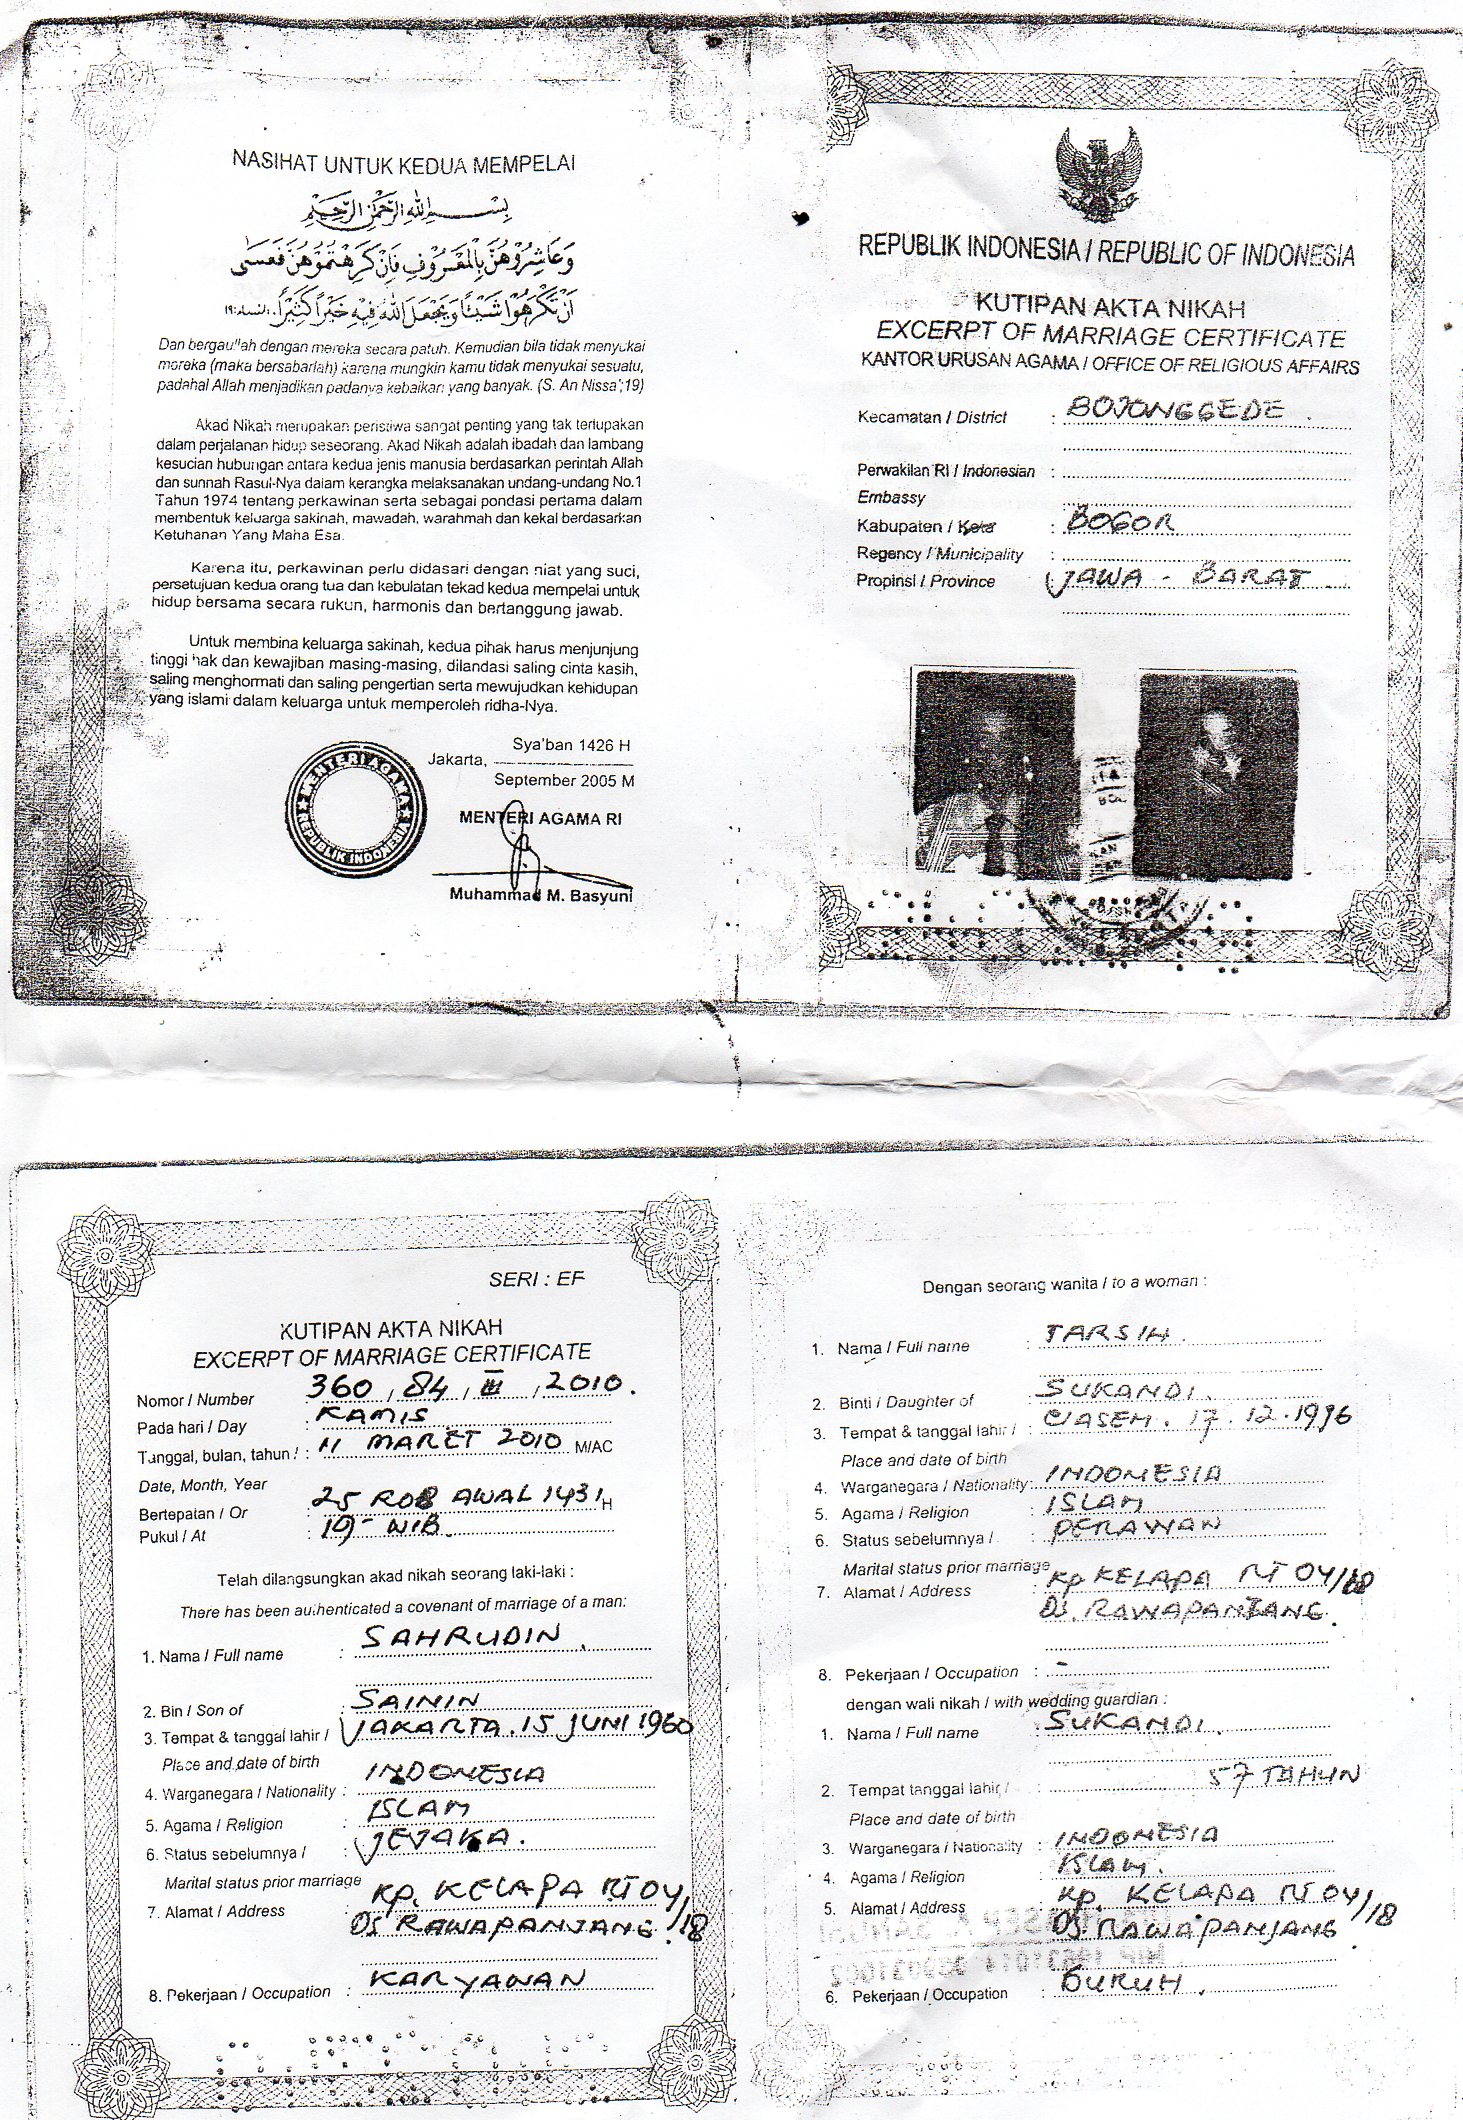 NASIHAT UNTUK KEDUA MEMPELAI
بِسْمِ اللهِ الرَّحْمٰنِ الرَّحِيْمِ
وَعَاشِرُوْهُنَّ بِالْمَعْرُوْفِ فَاِنْ كَرِهْتُمُوْهُنَّ فَعَسٰى
اَنْ تَكْرَهُوْا شَيْئًا وَيَجْعَلَ اللهُ فِيْهِ خَيْرًا كَثِيْرًا. النساء:١٩
Dan bergaullah dengan mereka secara patuh. Kemudian bila tidak menyukai
mereka (maka bersabarlah) karena mungkin kamu tidak menyukai sesuatu,
padahal Allah menjadikan padanya kebaikan yang banyak. (S. An Nissa';19)
Akad Nikah merupakan peristiwa sangat penting yang tak terlupakan
dalam perjalanan hidup seseorang. Akad Nikah adalah ibadah dan lambang
kesucian hubungan antara kedua jenis manusia berdasarkan perintah Allah
dan sunnah Rasul-Nya dalam kerangka melaksanakan undang-undang No.1
Tahun 1974 tentang perkawinan serta sebagai pondasi pertama dalam
membentuk keluarga sakinah, mawadah, warahmah dan kekal berdasarkan
Ketuhanan Yang Maha Esa.
Karena itu, perkawinan perlu didasari dengan niat yang suci,
persetujuan kedua orang tua dan kebulatan tekad kedua mempelai untuk
hidup bersama secara rukun, harmonis dan bertanggung jawab.
Untuk membina keluarga sakinah, kedua pihak harus menjunjung
tinggi hak dan kewajiban masing-masing, dilandasi saling cinta kasih,
saling menghormati dan saling pengertian serta mewujudkan kehidupan
yang islami dalam keluarga untuk memperoleh ridha-Nya.
Sya'ban 1426 H
Jakarta,
September 2005 M
MENTERI AGAMA RI
MENTERI AGAMA
REPUBLIK INDONESIA
Muhammad M. Basyuni
REPUBLIK INDONESIA / REPUBLIC OF INDONESIA
KUTIPAN AKTA NIKAH
EXCERPT OF MARRIAGE CERTIFICATE
KANTOR URUSAN AGAMA / OFFICE OF RELIGIOUS AFFAIRS
Kecamatan / District : BOJONGGEDE
Perwakilan RI / Indonesian :
Embassy
Kabupaten / Kota : BOGOR
Regency / Municipality :
Propinsi / Province : JAWA - BARAT
SERI : EF
KUTIPAN AKTA NIKAH
EXCERPT OF MARRIAGE CERTIFICATE
Nomor / Number : 360 / 84 / III / 2010.
Pada hari / Day : KAMIS
Tanggal, bulan, tahun / : 11 MARET 2010 M/AC
Date, Month, Year
Bertepatan / Or : 25 ROB AWAL 1431 H
Pukul / At : 10 - WIB.
Telah dilangsungkan akad nikah seorang laki-laki :
There has been authenticated a covenant of marriage of a man:
1. Nama / Full name : SAHRUDIN
2. Bin / Son of : SAININ
3. Tempat & tanggal lahir / JAKARTA. 15 JUNI 1960
Place and date of birth
4. Warganegara / Nationality : INDONESIA
5. Agama / Religion : ISLAM
6. Status sebelumnya / : JEJAKA.
Marital status prior marriage
7. Alamat / Address : Kp. KELAPA RT 04/18
Ds RAWAPANJANG.
8. Pekerjaan / Occupation : KARYAWAN
Dengan seorang wanita / to a woman :
1. Nama / Full name : TARSIH.
2. Binti / Daughter of : SUKANDI.
3. Tempat & tanggal lahir / : CIASEM. 17.12.1996
Place and date of birth
4. Warganegara / Nationality: INDONESIA
5. Agama / Religion : ISLAM
6. Status sebelumnya / : PERAWAN
Marital status prior marriage
7. Alamat / Address : Kp KELAPA RT 04/18
Ds. RAWAPANJANG.
8. Pekerjaan / Occupation : -
dengan wali nikah / with wedding guardian :
1. Nama / Full name : SUKANDI.
2. Tempat tanggal lahir / : 57 TAHUN
Place and date of birth
3. Warganegara / Nationality : INDONESIA
4. Agama / Religion : ISLAM.
5. Alamat / Address : Kp. KELAPA RT 04/18
Ds. RAWAPANJANG
6. Pekerjaan / Occupation : BURUH.